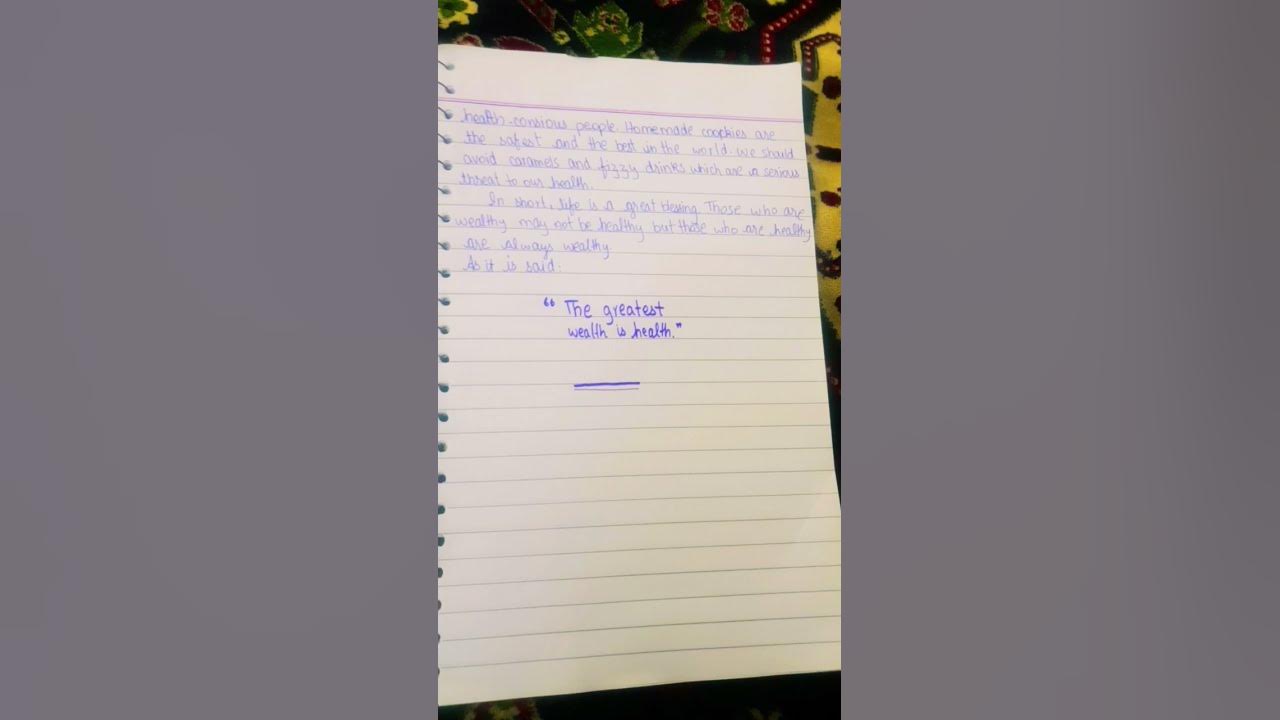 health-consious people. Homemade cookies are
the safest and the best in the world. We should
avoid caramels and fizzy drinks which are a serious
threat to our health.
In short, life is a great blessing. Those who are
wealthy may not be healthy but those who are healthy
are always wealthy.
As it is said:
“ The greatest
wealth is health.”